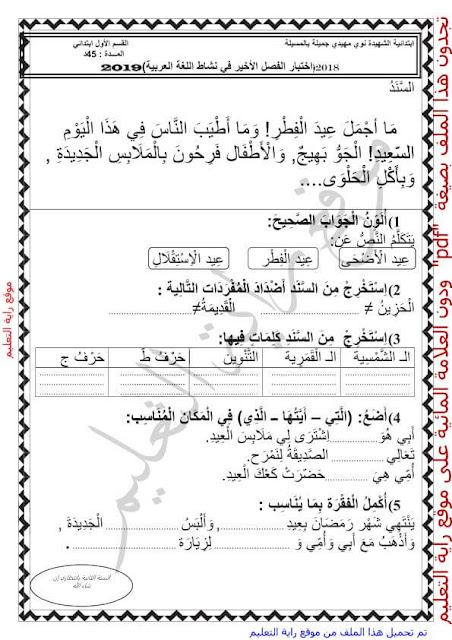 ابتدائية الشهيدة نوي مهيدي جميلة بالمسيلة
القسم الأول ابتدائي
المدة : 45د
2018(اختبار الفصل الأخير في نشاط اللغة العربية)2019
السَّنَدُ
مَا أَجْمَلَ عِيدَ الْفِطْرِ! وَمَا أَطْيَبَ النَّاسَ فِي هَذَا الْيَوْمِ
السّعِيدِ! الْجَوُّ بَهِيجٌ, وَالْأَطْفَال فَرِحُونَ بِالْمَلَابِسِ الْجَدِيدَةِ ,
وَبِأَكْلِ الْحَلْوَى....
1)أُلَوِّنُ الْجَوَابَ الصَّحِيحَ:
يَتَكَلَّمُ النَّصُّ عَنْ:
عِيدِ الْأَضْحَى
عِيدِ الْفِطْرِ
عِيدِ الْاِسْتِقْلَالِ
2)اِسْتَخْرِجْ مِنَ السَّنَدِ أَضْدَادَ الْمُفْرَدَاتِ التَّالِيَةِ :
الْحَزِينُ ≠ .................... الْقَدِيمَةُ≠....................
3)اِسْتَخْرِجْ مِنَ السَّنَدِ كَلِمَاتٍ فِيهَا:
الـ الشَّمْسِيَة
الـ الْقَمَرِية
التَّنْوِين
حَرْفُ ط
حَرْفُ ج
4)أَضَعُ: (الَّتِي – أَيَّتُهَا – الَّذِي) فِي الْمَكَانِ الْمُنَاسِبِ:
أَبِي هُوَ............اِشْتَرَى لِي مَلَابِسَ الْعِيدِ.
تَعَالِي ............ الصَّدِيقَةُ لِنَمْرَحَ.
أُمِّي هِيَ ............ حَضّرَتْ كَعْكَ الْعِيدِ.
5)أُكْمِلُ الْفِقْرَةَ بِمَا يُنَاسِب :
يَنْتَهِي شَهْرُ رَمَضَانَ بِعِيدِ ............, وَأَلْبَسُ ............ الْجَدِيدَةَ ,
وَأَذْهَبُ مَعَ أَبِي وَأُمِّي وَ ............ لِزِيَارَةِ ............ .
السنة الثانية بانتظاري إن
شاء الله
موقع راية التعليم
موقع راية التعليم
تجدون هذا الملف بصيغة "pdf" ودون العلامة المائية على موقع راية التعليم
تم تحميل هذا الملف من موقع راية التعليم